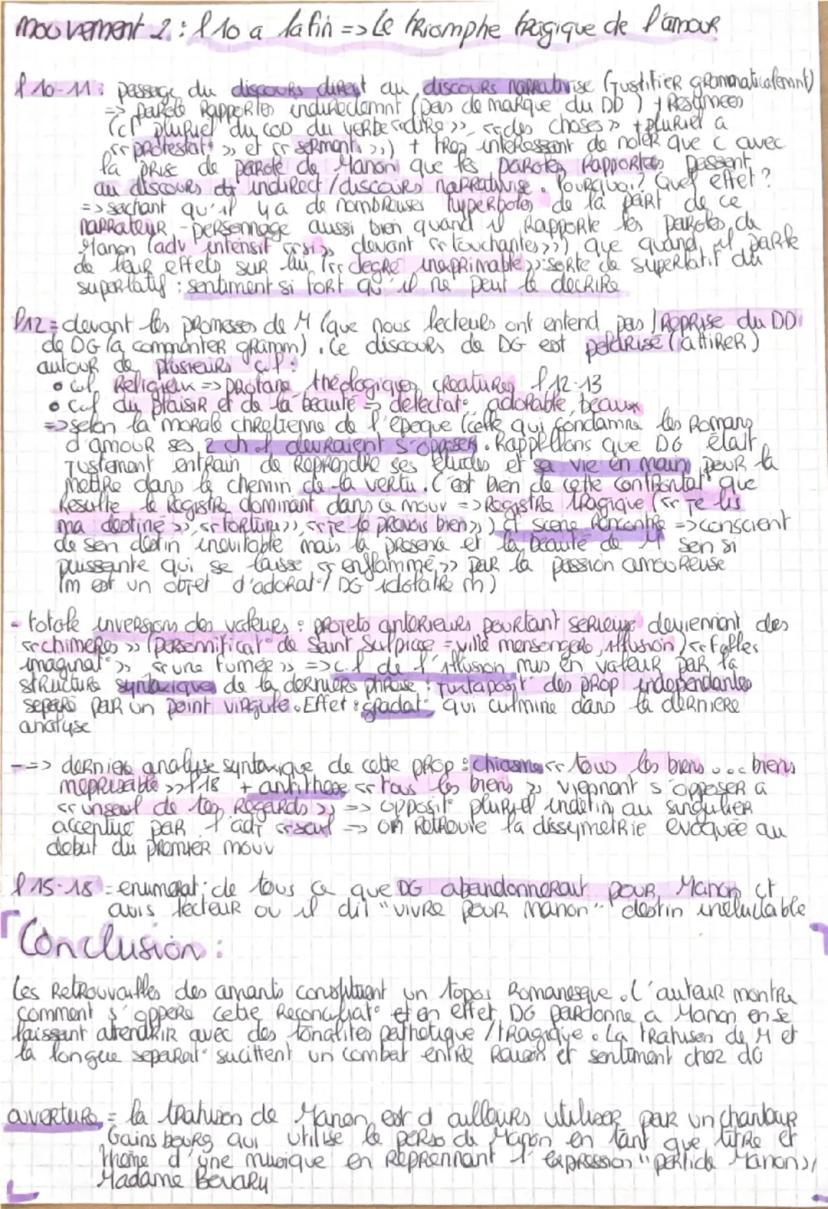 mouvement 2 : l 10 a la fin => Le triomphe tragique de l'amour
l 10-11 : passage du discours direct au discours narrativisé (justifier grammaticalemnt)
=> parole rapportes indirectemnt (pas de marque du DD) + Resumees
(cf pluriel du COD du verbe "dire", "des choses" + pluriel a
"protestat°" et "serments") + trop interessant de noter que c avec
la prise de parole de Manon que les paroles rapportes passent
au discours indirect / discours narrativise. Pourquoi? Quel effet?
=> sachant qu'il y a de nombreuses hyperboles de la part de ce
narrateur-personnage aussi bien quand il rapporte les paroles de
Manon (adv intensif "si" devant "touchantes") que quand il parle
de leur effets sur lui "degré inexprimable" : sorte de superlatif du
superlatif : sentiment si fort qu'il ne peut le decrire
l 12 = devant les promesses de M (que nous lecteurs ont entend pas) Reprise du DD
de DG (a commenter gramm). Ce discours de DG est polarisé (attirer)
autour de plusieurs c.l :
• c.l Religieux => profane, théologiques, creatures l 12-13
• c.l du plaisir et de la beaute => delectat°, adorable, beaux
=> selon la morale chretienne de l'epoque (celle qui condamne les Romans
d'amour ses 2 ch l devraient s'opposer. Rappellons que DG était
justement entrain de reprendre ses études et sa vie en main pour la
mettre dans le chemin de la vertu. C'est bien de cette confrontat° que
resulte le registre dominant dans ce mouv => Registre tragique ("je lis
ma destiné", "je le prevois bien") et scene rencontre => conscient
de sen destin inevitable mais la presence et la beauté de M sen si
puissante qui se laisse "enflammé" par la passion amoureuse
(m est un objet d'adorat° / DG idolatre m)
- totale inversion des valeurs : projets anterieurs pourtant serieux deviennent des
"chimeres" (personnificat° de Saint Sulpice = ville mensonges, illusion) "folles
imaginat°" "une fumée" => c.l de l'illusion mis en valeur par la
structure syntaxique de la derniere phrase : juxtaposit° des prop independantes
separé par un point virgule. Effet : gradat° qui culmine dans la derniere
analyse
-=> derniere analyse syntaxique de cette prop : chiasme "tous les biens ... biens
meprisable" l 18 + antithese "tous les biens" viennant s'opposer a
"un seul de tes regards" => opposit° pluriel indefini au singulier
accentué par l'adj "seul" => on retrouve la dissymetrie evoquée au
debut du premier mouv
l 15-18 = enumerat° de tous ce que DG abandonnerait pour Manon cf
avis lecteur ou il dit "vivre pour manon" destin ineluctable
Conclusion :
Les Retrouvailles des amants constituent un topos Romanesque. L'auteur montre
comment s'oppere cette Reconciliat° et en effet, DG pardonne a Manon en se
laissant attendrir avec des tonalités pathetique / tragique. La trahison de M et
la longue separat° sucittent un combat entre Raison et sentiment chez dG
ouverture = la trahison de Manon est d ailleurs utiliser par un chanteur
Gainsbourg qui utilise le perso de Manon en tant que titre et
theme d'une musique en reprennant l'expression "perfide Manon",
Madame Bovary